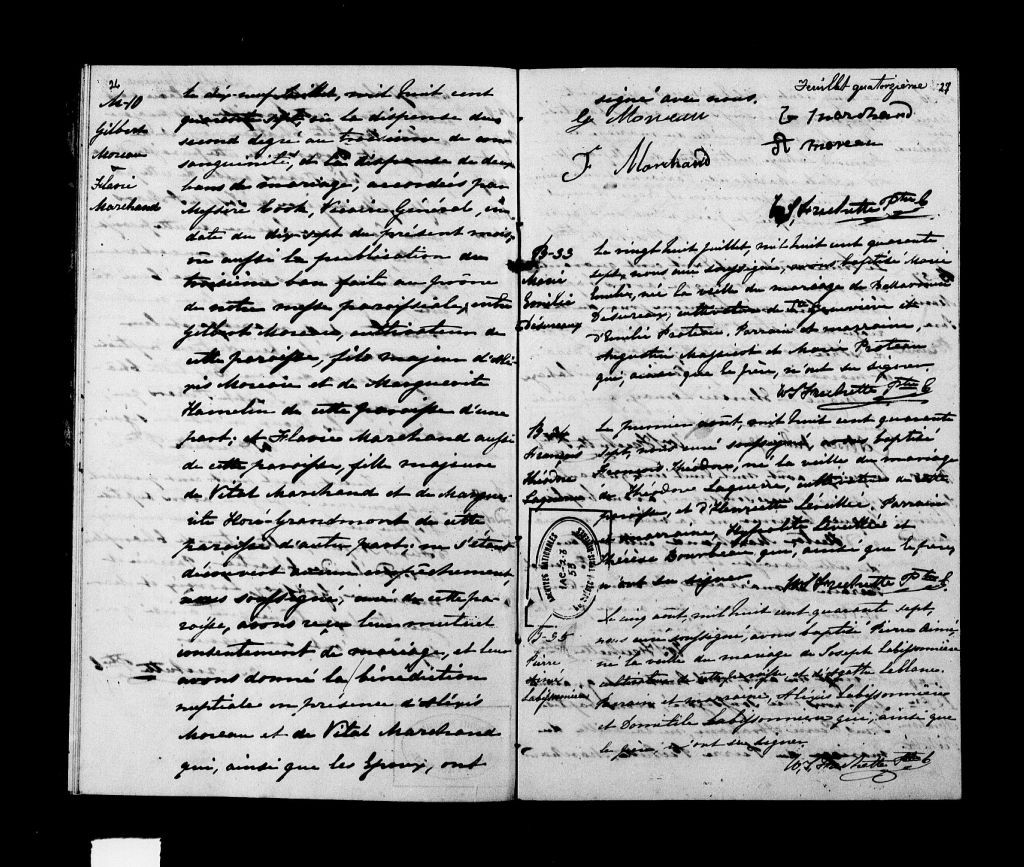 M-10
Gilbert
Moreau
&
Flavie
Marchand
Le dix-neuf Juillet, mil huit cent
quarante sept, vu la dispense du
second degré au troisième de con
sanguinité, et la dispense de deux
bans de mariage, accordées par
Messire Cook, Vicaire Général, en
date du dix-sept du présent mois,
vu aussi la publication du
troisième ban faite au prône
de notre messe paroissiale, entre
Gilbert Moreau, cultivateur de
cette paroisse, fils majeur d'Alé
xis Moreau et de Marguerite
Hamelin de cette paroisse d'une
part; et Flavie Marchand aussi
de cette paroisse, fille majeure
de Vital Marchand et de Margue-
rite Grandmont de cette
paroisse d'autre part; ne s'étant
découvert aucun empêchement,
nous soussigné, curé de cette pa-
roisse, avons reçu leur mutuel
consentement de mariage, et leur
avons donné la bénédiction
nuptiale en présence d'Aléxis
Moreau et de Vital Marchand
qui, ainsi que les Epoux, ont
Feuillet quatorzième
signé avec nous.
G Moreau
Marchand
F Marchand
moreau
Fréchette Ptre C
B-33
Marie
Emilie
Désureaux
Le vingt huit juillet, mil huit cent quarante
sept, nous curé soussigné, avons baptisé Marie
Emilie, née la veille du mariage de
Desureaux, cultivateur de
d'Emilie Proteau. Parrain et marraine,
Augustin et Marie Proteau
qui, ainsi que le père, n'ont su signer.
Fréchette Ptre C
B-34
François
Théodore
Le premier août, mil huit cent quarante
sept, nous curé soussigné avons baptisé
François Théodore, né la veille du mariage
de Théodore cultivateur de cette
paroisse, et d'Henriette Parrain
et marraine, et
Thérèse qui, ainsi que le père,
n'ont su signer. Fréchette Ptre C
ARCHIVES NATIONALES
B-35
Pierre
Aimé
Labissonnière
Le cinq août, mil huit cent quarante sept,
nous curé soussigné, avons baptisé Pierre Aimé
né la veille du mariage de Joseph Labissonnière
cultivateur de cette paroisse et de Leblanc.
Parrain et marraine, Aléxis Labissonnière
et Domitile Labissonnière qui, ainsi que
le père, n'ont su signer.
Fréchette Ptre C